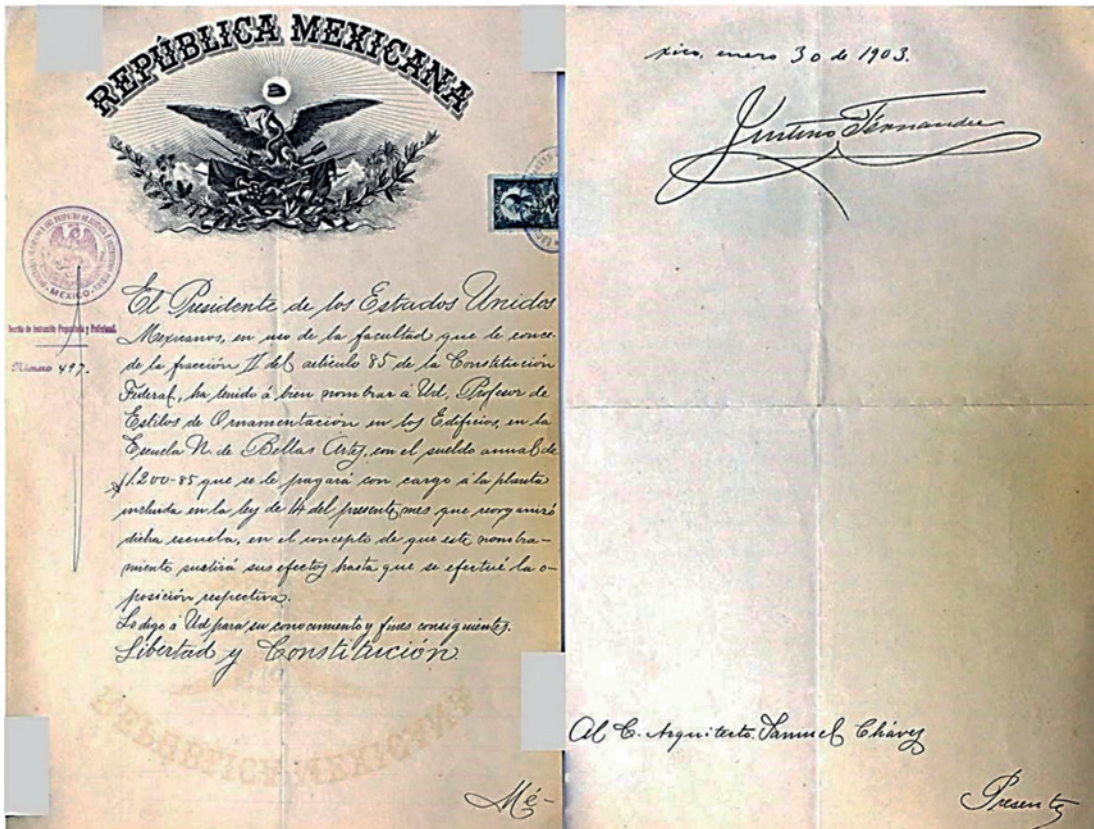 REPÚBLICA MEXICANA
MEXICO
Sección de Instrucción Preparatoria y Profesional.
Número 497.
El Presidente de los Estados Unidos
Mexicanos, en uso de la facultad que le conce-
de la fracción II del artículo 85 de la Constitución
Federal, ha tenido á bien nombrar á Ud, Profesor de
Estilos de Ornamentación en los Edificios, en la
Escuela N. de Bellas Artes, con el sueldo anual de
$1.200-85 que se le pagará con cargo á la planta
incluida en la ley de 14 del presente mes que reorganizó
dicha escuela, en el concepto de que este nombra-
miento surtirá sus efectos hasta que se efectué la o-
posición respectiva.
Lo digo á Ud para su conocimiento y fines consiguientes.
Libertad y Constitución.
Mé-
xico, enero 30 de 1903.
Justino Fernandez
Al C. Arquitecto Samuel Chávez
Presente